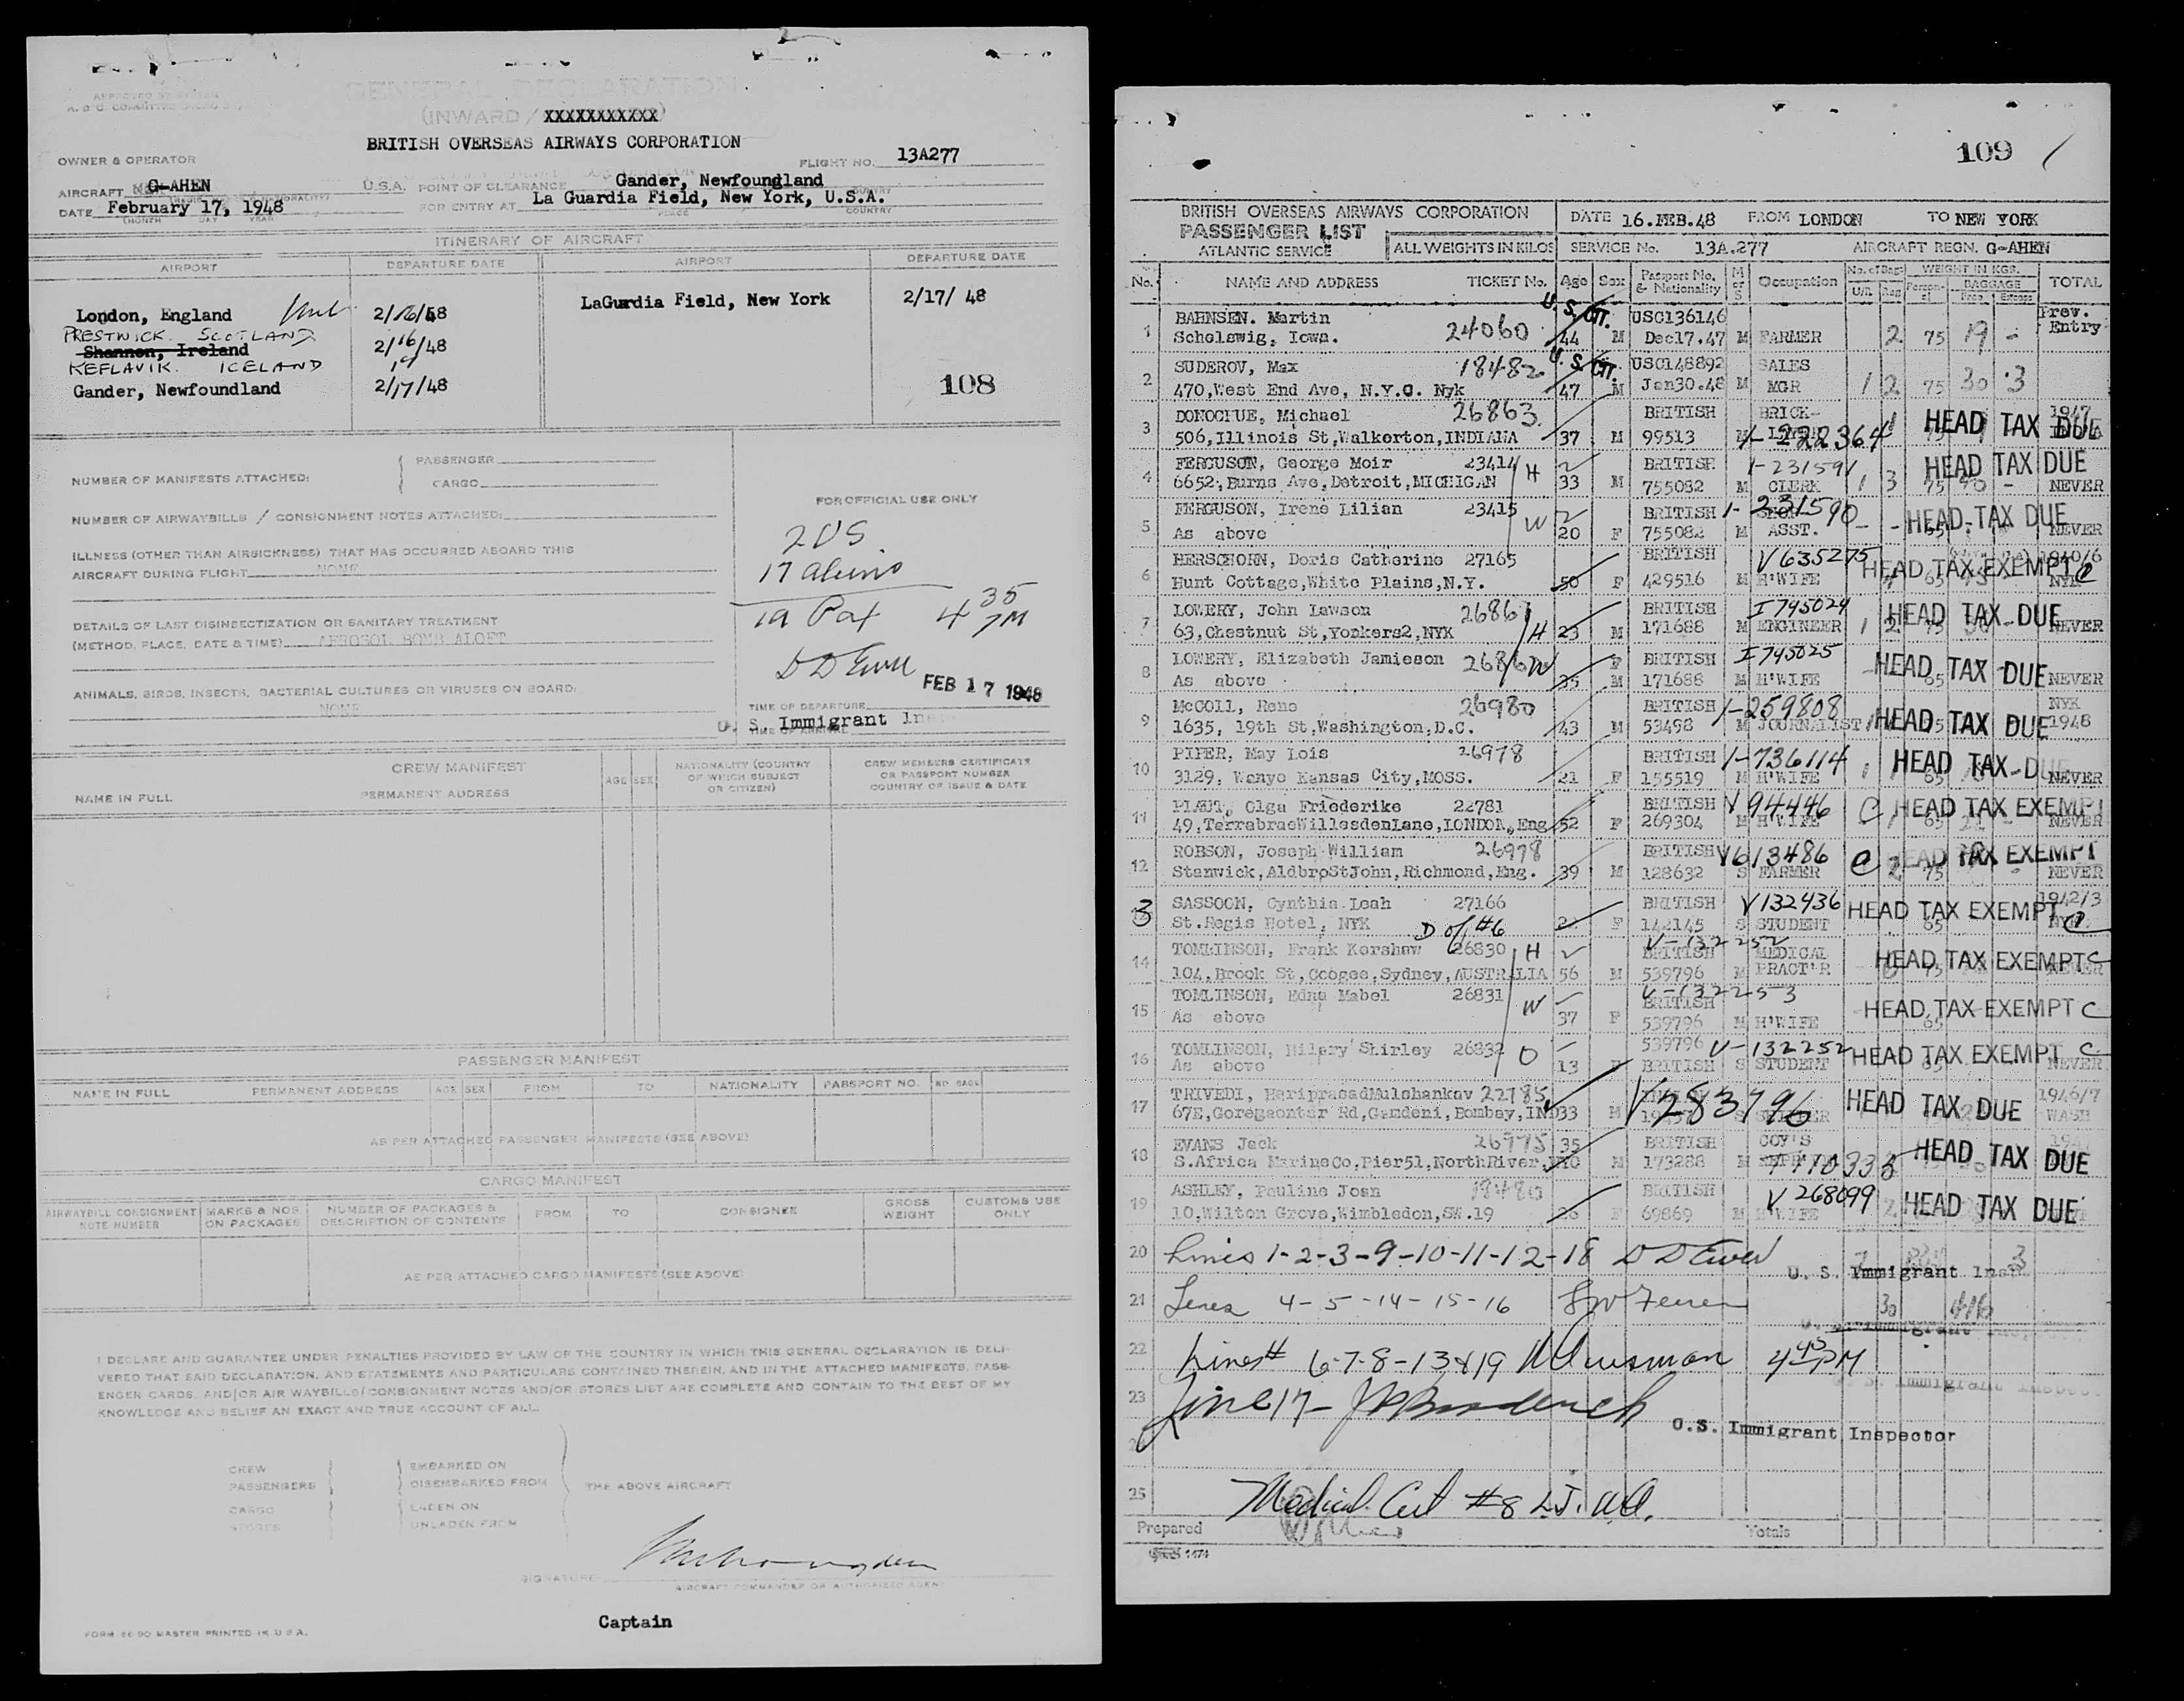 APPROVED BY SYSTEM
GENERAL DECLARATION
(INWARD / XXXXXXXXXXX)
BRITISH OVERSEAS AIRWAYS CORPORATION
OWNER & OPERATOR
FLIGHT NO. 13A277
AIRCRAFT G-AHEN U.S.A. POINT OF CLEARANCE Gander, Newfoundland
DATE February 17, 1948 FOR ENTRY AT La Guardia Field, New York, U.S.A.
(MONTH DAY YEAR) PLACE COUNTRY
ITINERARY OF AIRCRAFT
AIRPORT DEPARTURE DATE AIRPORT DEPARTURE DATE
London, England 2/16/48 LaGuardia Field, New York 2/17/ 48
PRESTWICK. SCOTLAND
Shannon, Ireland 2/16/48
KEFLAVIK. ICELAND
Gander, Newfoundland 2/17/48
108
NUMBER OF MANIFESTS ATTACHED: PASSENGER
CARGO
FOR OFFICIAL USE ONLY
NUMBER OF AIRWAYBILLS / CONSIGNMENT NOTES ATTACHED:
2 US
17 aliens
19 Pax 4 35 PM
ILLNESS (OTHER THAN AIRSICKNESS) THAT HAS OCCURRED ABOARD THIS
AIRCRAFT DURING FLIGHT NONE
DETAILS OF LAST DISINSECTIZATION OR SANITARY TREATMENT
(METHOD, PLACE, DATE & TIME) AEROSOL BOMB ALOFT
D D Ewen
FEB 17 1948
ANIMALS, BIRDS, INSECTS, BACTERIAL CULTURES OR VIRUSES ON BOARD:
NONE
TIME OF DEPARTURE
U. S. Immigrant Ins
TIME OF ARRIVAL
CREW MANIFEST
NAME IN FULL PERMANENT ADDRESS AGE SEX NATIONALITY (COUNTRY OF WHICH SUBJECT OR CITIZEN) CREW MEMBERS CERTIFICATE OR PASSPORT NUMBER COUNTRY OF ISSUE & DATE
PASSENGER MANIFEST
NAME IN FULL PERMANENT ADDRESS AGE SEX FROM TO NATIONALITY PASSPORT NO. NO. BAGS
AS PER ATTACHED PASSENGER MANIFESTS (SEE ABOVE)
CARGO MANIFEST
AIRWAYBILL CONSIGNMENT NOTE NUMBER MARKS & NOS ON PACKAGES NUMBER OF PACKAGES & DESCRIPTION OF CONTENTS FROM TO CONSIGNEE GROSS WEIGHT CUSTOMS USE ONLY
AS PER ATTACHED CARGO MANIFESTS (SEE ABOVE)
I DECLARE AND GUARANTEE UNDER PENALTIES PROVIDED BY LAW OF THE COUNTRY IN WHICH THIS GENERAL DECLARATION IS DELI-
VERED THAT SAID DECLARATION, AND STATEMENTS AND PARTICULARS CONTAINED THEREIN, AND IN THE ATTACHED MANIFESTS, PASS-
ENGER CARDS, AND/OR AIR WAYBILLS/CONSIGNMENT NOTES AND/OR STORES LIST ARE COMPLETE AND CONTAIN TO THE BEST OF MY
KNOWLEDGE AND BELIEF AN EXACT AND TRUE ACCOUNT OF ALL.
CREW EMBARKED ON
PASSENGERS DISEMBARKED FROM THE ABOVE AIRCRAFT
CARGO LADEN ON
STORES UNLADEN FROM
SIGNATURE
AIRCRAFT COMMANDER OR AUTHORIZED AGENT
Captain
FORM 66-90 MASTER PRINTED IN U.S.A.
109
BRITISH OVERSEAS AIRWAYS CORPORATION DATE 16.FEB.48 FROM LONDON TO NEW YORK
PASSENGER LIST
ATLANTIC SERVICE ALL WEIGHTS IN KILOS SERVICE No. 13A.277 AIRCRAFT REGN. G-AHEN
No. NAME AND ADDRESS TICKET No. Age Sex Passport No. & Nationality M or S Occupation No. of Bags U/R Reg WEIGHT IN KGS. Person-el BAGGAGE Free Excess TOTAL
Prev. Entry
1 BAHNSEN. Martin 24060 U.S. CIT. USC136146
Scholswig, Iowa. 44 M Dec17.47 M FARMER 2 75 19 -
2 SUDEROV, Max 18482 U.S. CIT. USC148892 SALES
470,West End Ave, N.Y.C. Nyk 47 M Jan30.48 M MGR 1 2 75 30 3
3 DONOGHUE, Michael 26863 BRITISH BRICK- 1947
506,Illinois St,Walkerton,INDIANA 37 M 99513 1-222364 HEAD TAX DUE
4 FERGUSON, George Moir 23414 H BRITISH 1-231591 HEAD TAX DUE
6652,Burns Ave,Detroit,MICHIGAN 33 M 755082 M CLERK 1 3 75 40 - NEVER
5 FERGUSON, Irene Lilian 23415 W BRITISH 1-231590 HEAD TAX DUE
As above 20 F 755082 M ASST. - - NEVER
6 HERSCHORN, Doris Catherine 27165 BRITISH V635275 1940/6
Hunt Cottage,White Plains,N.Y. 50 F 429516 M H'WIFE HEAD TAX EXEMPT C
7 LOWERY, John Lawson 26861 H BRITISH I745024 HEAD TAX DUE
63,Chestnut St,Yonkers2,NYK 23 M 171688 M ENGINEER 1 2 NEVER
8 LOWERY, Elizabeth Jamieson 26862 W F BRITISH I745025 HEAD TAX DUE
As above 35 M 171688 M H'WIFE NEVER
9 McCOLL, Rene 26980 BRITISH 1-259808 NYK
1635, 19th St,Washington,D.C. 43 M 53498 M JOURNALIST HEAD TAX DUE 1948
10 PIPER, May Lois 26978 BRITISH 1-736114 HEAD TAX DUE
3129, Wanyo Kansas City,MOSS. 21 F 155519 M H'WIFE NEVER
11 PLAUT, Olga Friederike 22781 BRITISH V94446 C HEAD TAX EXEMPT
49,TarrabraeWillesdenLane,LONDON,Eng 52 F 269304 M H'WIFE NEVER
12 ROBSON, Joseph William 26978 BRITISH V613486 C HEAD TAX EXEMPT
Stanwick,AldbroStJohn,Richmond,Eng. 39 M 128632 S FARMER 2 75 NEVER
13 SASSOON, Cynthia Leah 27166 BRITISH V132436 HEAD TAX EXEMPT 1942/3
St.Regis Hotel, NYK D of #6 F 142145 S STUDENT C
14 TOMLINSON, Frank Kershaw 26830 H BRITISH V-132252 MEDICAL HEAD TAX EXEMPT C
104,Brook St,Coogee,Sydney,AUSTRALIA 56 M 539796 M PRACT'R NEVER
15 TOMLINSON, Edna Mabel 26831 W BRITISH V-132253 HEAD TAX EXEMPT C
As above 37 F 539796 M H'WIFE
16 TOMLINSON, Hilary Shirley 26832 D 539796 V-132252 HEAD TAX EXEMPT C
As above 13 F BRITISH S STUDENT
17 TRIVEDI, HariprasadMulshankav 22785 V283796 HEAD TAX DUE 1946/7
67E,Goregaonter Rd,Gamdeni,Bombay,IND 33 M WASH
18 EVANS Jack 26975 35 BRITISH COY'S HEAD TAX DUE
S.Africa MarineCo,Pier51,NorthRiver,NYC M 173288
19 ASHLEY, Pauline Joan 18480 BRITISH V 268099 HEAD TAX DUE
10,Wilton Grove,Wimbledon,SW.19 26 F 69869 M H'WIFE
20 Lines 1-2-3-9-10-11-12-18 D D Ewen
U. S. Immigrant Insp.
21 Lines 4-5-14-15-16
30 416
22 Lines# 6-7-8-13&19 4 45 PM
23 Line 17-
24 U.S. Immigrant Inspector
25 Medical Cert #8 L.J.
Prepared Totals